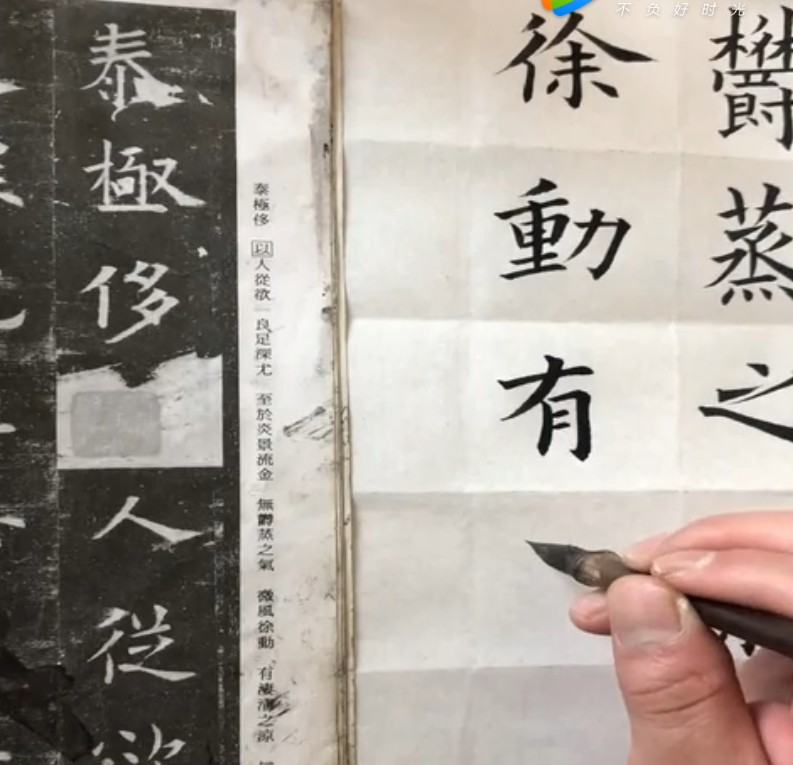 不负好时光
欝蒸之
徐動有
泰極侈 以人從欲 良足深尤 至於炎景流金 無欝蒸之氣 微風徐動 有凄清之涼
泰極侈人従欲